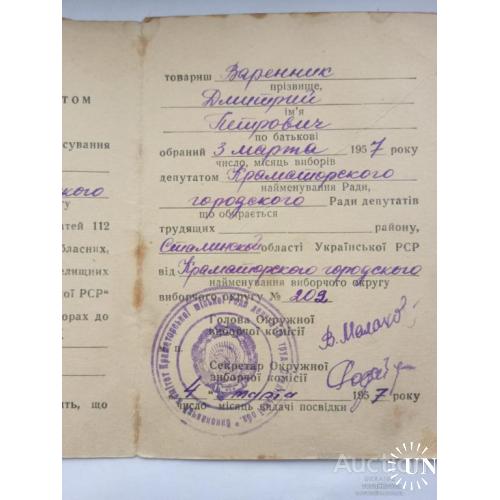 том
сування
кого
гу
татей 112
бласних,
елищних
ї РСР"
орах до
ить, що
товариш Варенник
прізвище,
Дмитрий
ім'я
Петрович
по батькові
обраний 3 марта 1957 року
число, місяць виборів
депутатом Краматорского
найменування Ради,
городского Ради депутатів
що обирається
трудящих району,
Сталинской області Української РСР
від Краматорского городского
найменування виборчого округу
виборчого округу № 202
Голова Окружної
виборчої комісії
п.
Секретар Окружної
виборчої комісії
4 марта 1957 року
число місяць видачі посвідки
UN